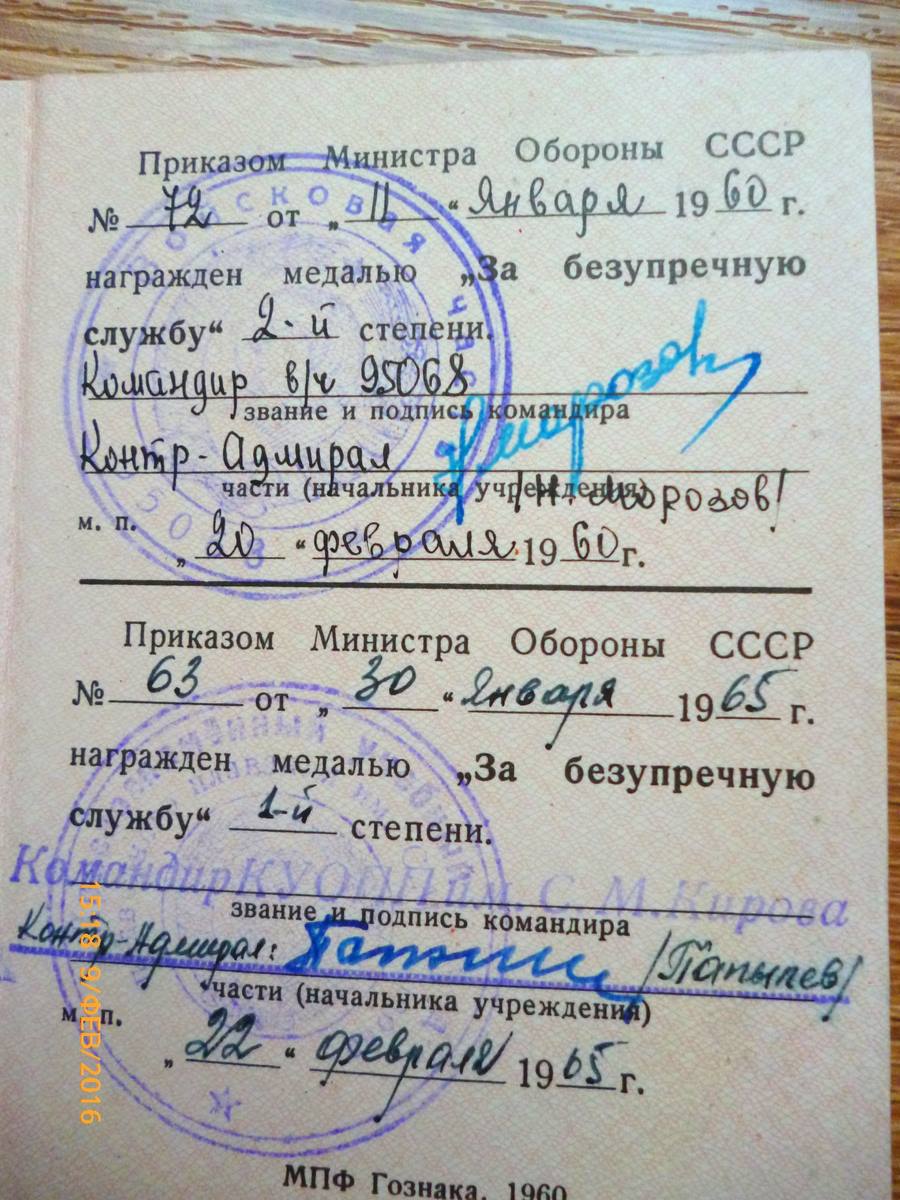 Приказом Министра Обороны СССР
№ 72 от „ 11 “ Января 1960 г.
награжден медалью „За безупречную
службу“ 2-й степени.
Командир в/ч 95068
звание и подпись командира
Контр-Адмирал Н Морозов
части (начальника учреждения)
/Н. Морозов/
м. п.
„ 20 “ февраля 1960 г.
ВОЙСКОВАЯ ЧАСТЬ
Приказом Министра Обороны СССР
№ 63 от „ 30 “ Января 1965 г.
награжден медалью „За безупречную
службу“ 1-й степени.
Командир КУОПП им. С. М. Кирова
звание и подпись командира
Контр-Адмирал: /Папылев/
части (начальника учреждения)
м. п.
„ 22 “ февраля 1965 г.
МПФ Гознака. 1960
15:18 9/ФЕВ/2016